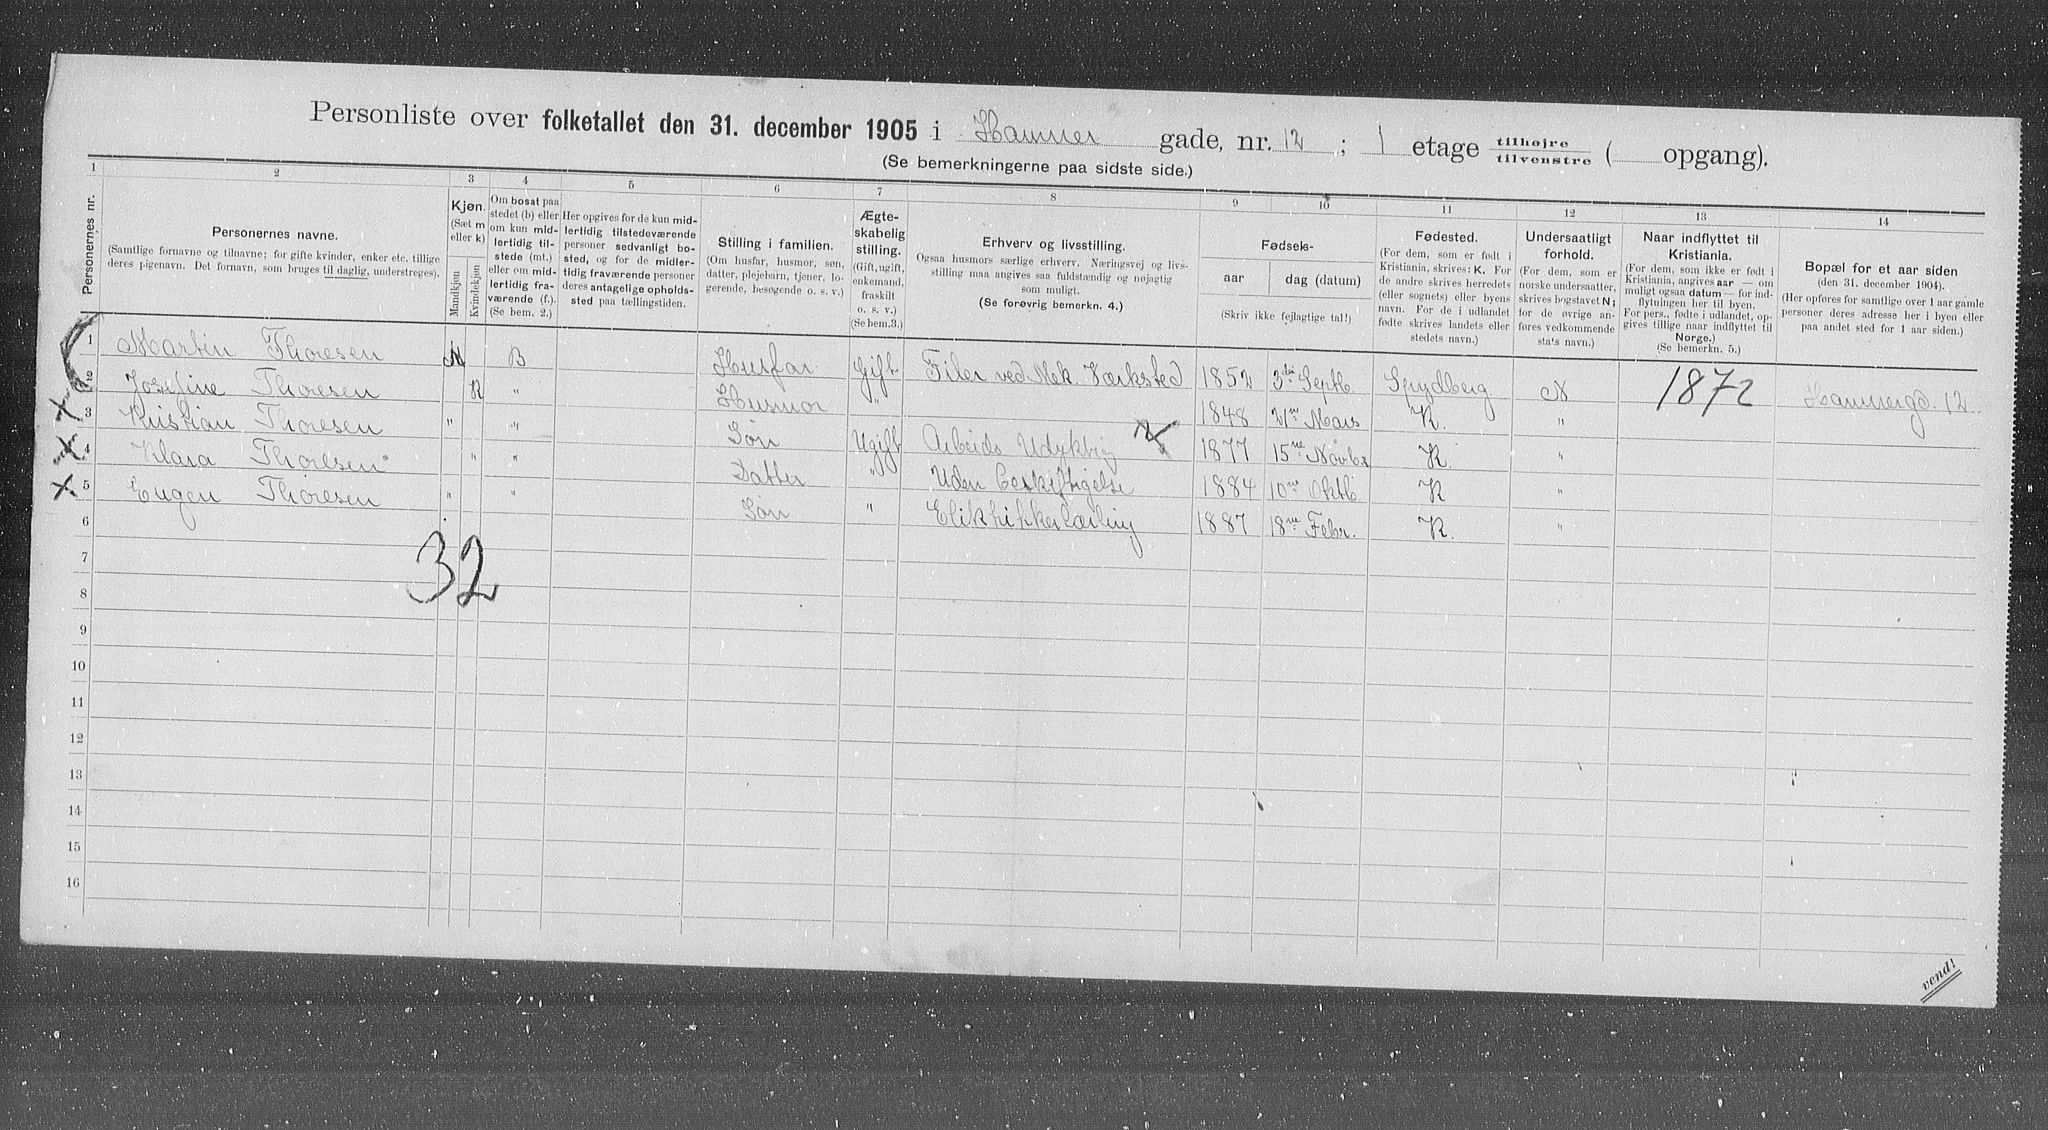 Personliste over folketallet den 31. december 1905 i Hammer gade, nr. 12 ; 1 etage tilhøjre tilvenstre ( opgang).
(Se bemerkningerne paa sidste side.)
1 2 3 4 5 6 7 8 9 10 11 12 13 14
Personernes nr.
Personernes navne.
(Samtlige fornavne og tilnavne; for gifte kvinder, enker etc. tillige
deres pigenavn. Det fornavn, som bruges til daglig, understreges).
Kjøn.
(Sæt m
eller k)
Mandkjøn
Kvindekjøn
Om bosat paa
stedet (b) eller
om kun mid-
lertidig til-
stede (mt.)
eller om mid-
lertidig fra-
værende (f.).
(Se bem. 2.)
Her opgives for de kun mid-
lertidig tilstedeværende
personer sedvanligt bo-
sted, og for de midler-
tidig fraværende personer
deres antagelige opholds-
sted paa tællingstiden.
Stilling i familien.
(Om husfar, husmor, søn,
datter, plejebarn, tjener, lo-
gerende, besøgende o. s. v.)
Ægte-
skabelig
stilling.
(Gift, ugift,
enkemand,
fraskilt
o. s. v.)
(Se bem. 3.)
Erhverv og livsstilling.
Ogsaa husmors særlige erhverv. Næringsvej og livs-
stilling maa angives saa fuldstændig og nøjagtig
som muligt.
(Se forøvrig bemerkn. 4.)
Fødsels-
aar dag (datum)
(Skriv ikke fejlagtige tal!)
Fødested.
(For dem, som er født i
Kristiania, skrives: K. For
de andre skrives herredets
(eller sognets) eller byens
navn. For de i udlandet
fødte skrives landets eller
stedets navn.)
Undersaatligt
forhold.
(For dem, som er
norske undersaatter,
skrives bogstavet N;
for de øvrige an-
føres vedkommende
stats navn.)
Naar indflyttet til
Kristiania.
(For dem, som ikke er født i
Kristiania, angives aar — om
muligt ogsaa datum — for ind-
flytningen her til byen.
For pers., fødte i udlandet, op-
gives tillige naar indflyttet til
Norge.)
(Se bemerkn. 5.)
Bopæl for et aar siden
(den 31. december 1904).
(Her opføres for samtlige over 1 aar gamle
personer deres adresse her i byen eller
paa andet sted for 1 aar siden.)
1 Martin Thoresen M B Husfar Gift Filer ved Mek. Værksted 1852 3die Septb Spydberg N 1872 Hammergd. 12
2 Josefine Thoresen K " Husmor " 1848 21ne Mars K. "
3 Kristian Thoresen " " Søn Ugift Arbeids 1877 15ne Novbr K. "
4 Klara Thoresen " " Datter " Uden Beskjeftigelse 1884 10ne Oktb K "
5 Eugen Thoresen " " Søn " 1887 18ne Febr. K. "
6
7
32
8
9
10
11
12
13
14
15
16
vend!